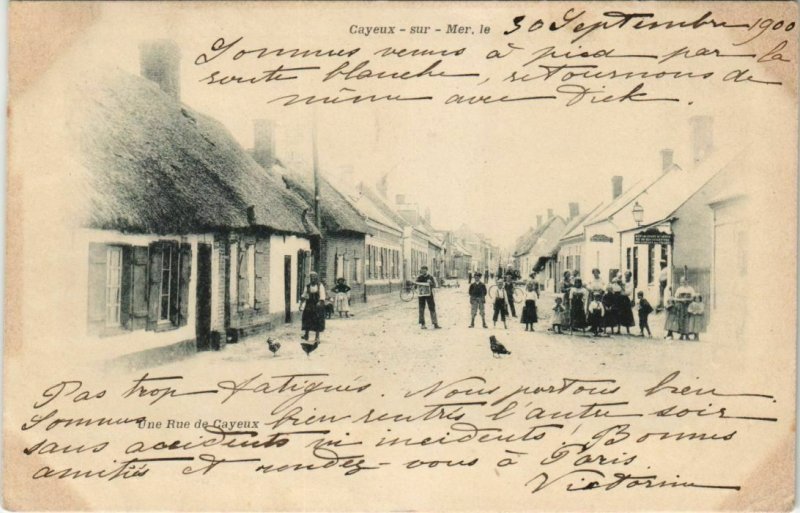 Cayeux - sur - Mer, le 30 Septembre 1900
Sommes venus à pied par la
route blanche, retournons de
même avec Dick.
Pas trop fatigués. Nous portons bien.
Sommes bien rentrés l'autre soir
Une Rue de Cayeux
sans accidents ni incidents! Bonnes
amitiés et rendez-vous à Paris.
Victorine